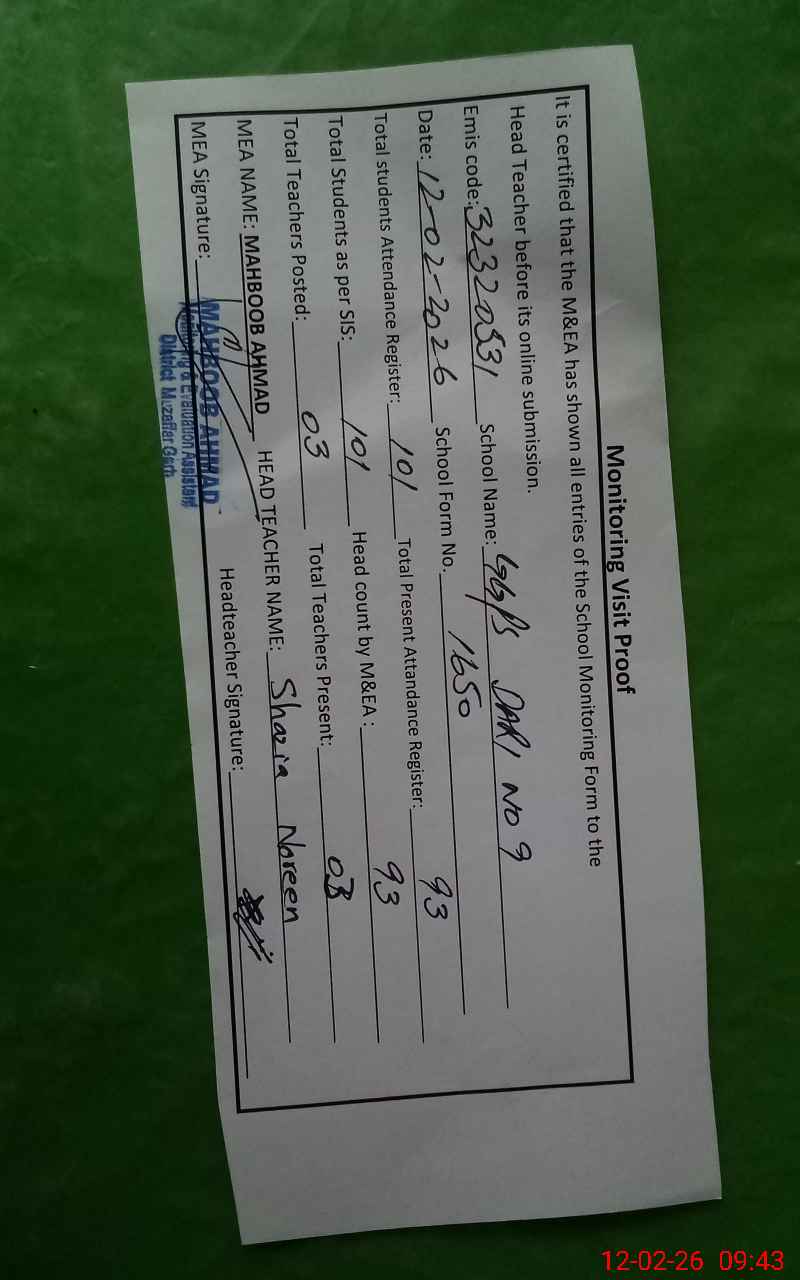 Monitoring Visit Proof
It is certified that the M&EA has shown all entries of the School Monitoring Form to the
Head Teacher before its online submission.
Emis code: 32320531 School Name: GGPS DARI NO 9
Date: 12-02-2026 School Form No. 1650
Total students Attendance Register: 101 Total Present Attandance Register: 93
Total Students as per SIS: 101 Head count by M&EA : 93
Total Teachers Posted: 03 Total Teachers Present: 03
MEA NAME: MAHBOOB AHMAD HEAD TEACHER NAME: Shazia Noreen
MEA Signature: Headteacher Signature:
MAHBOOB AHMAD
Monitoring & Evaluation Assistant
District Muzaffar Garh
12-02-26 09:43